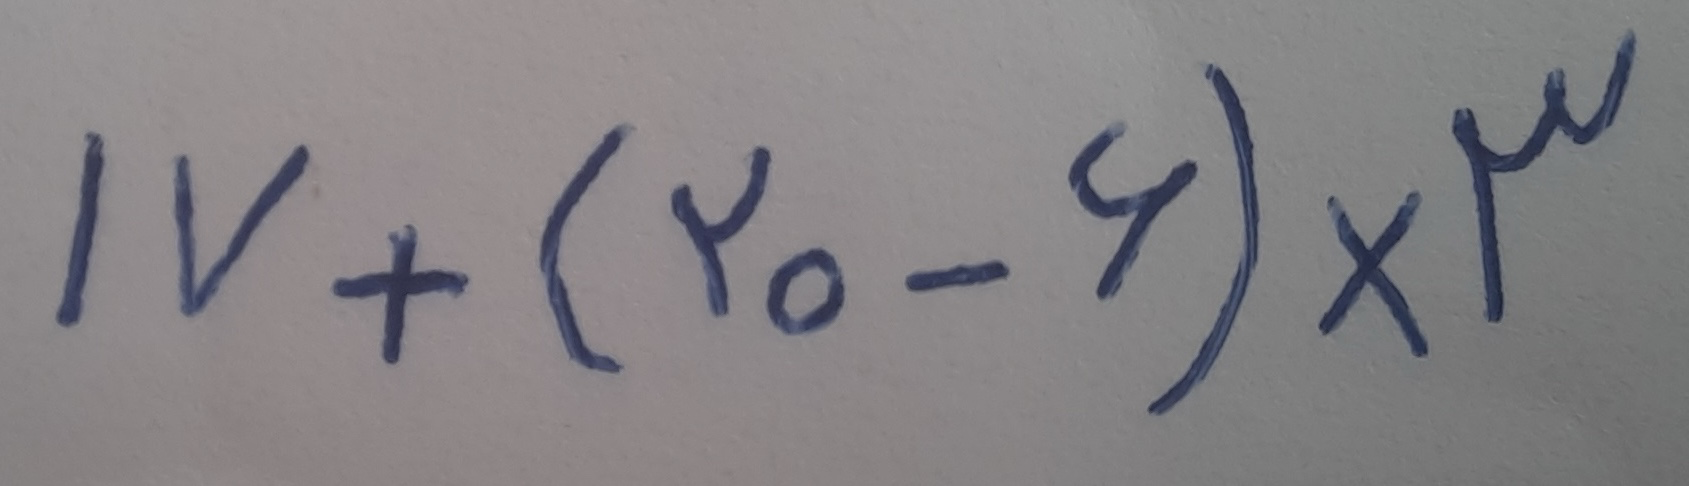 ۱۷ + (۲۰ - ۶) × ۳